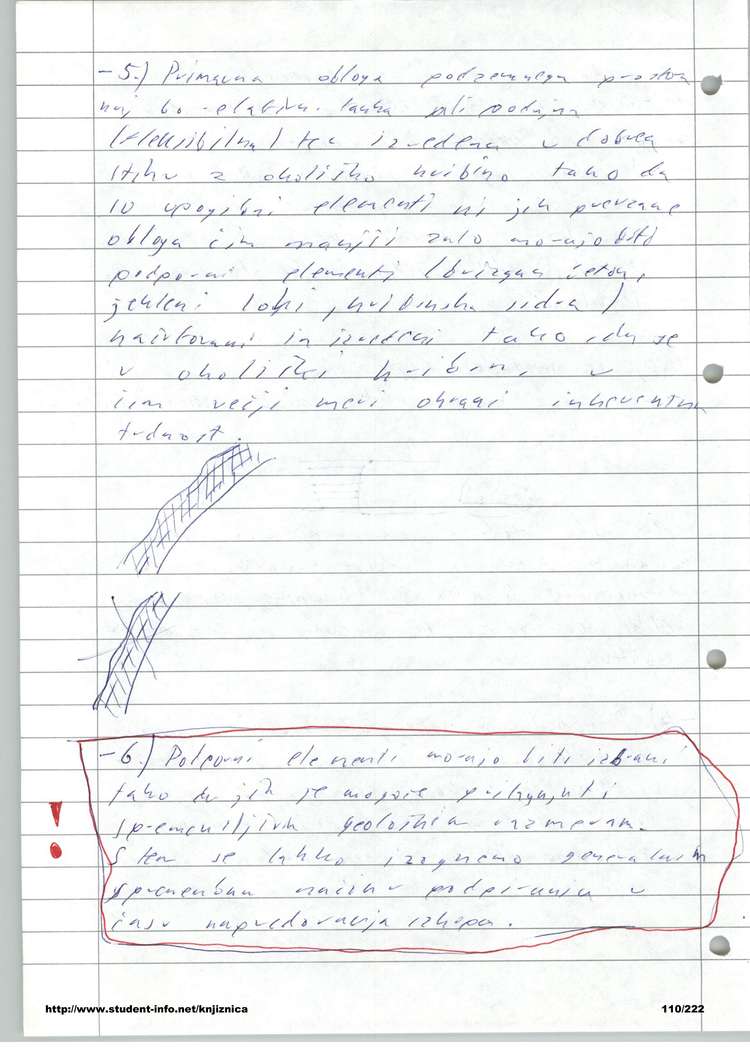 - 5.) Primarna obloga podzemnega prostora
naj bo relativno tanka ali podajna
(fleksibilna) ter izvedena v dobrem
stiku z okoliško hribino tako da
so upogibni elementi
obloga čim manjši zato morajo biti
podporni elementi (brizgan beton,
jekleni loki, hribinska sidra)
načrtovani in izvedeni tako, da se
v okoliški hribini v
čim večji meri ohrani inherentna
trdnost.
- 6.) Podporni elementi morajo biti izbrani
tako da jih je mogoče prilagajati
spremenljivim geološkim razmeram.
S tem se lahko izognemo generalnim
spremembam načinov podpiranja v
času napredovanja izkopa.
!
http://www.student-info.net/knjiznica
110/222